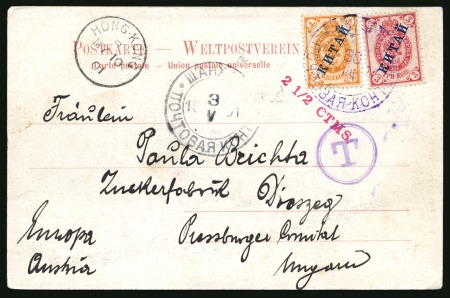 HONG-KONG
POSTKARTE — WELTPOSTVEREIN
Carte postale — Union postale universelle
КИТАЙ
КИТАЙ
ПОЧТОВАЯ КОНТ
3
V
2 1/2 CTMS.
T
Fräulein
Paula Brichta
Zuckerfabrik Dioszeg
Europa Pressburger Comitat
Austria Ungarn